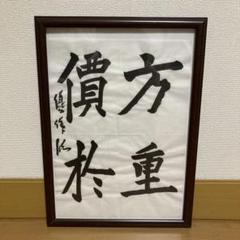 方重
價於